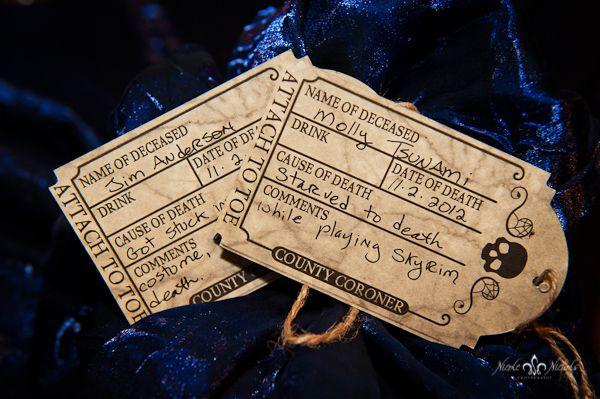 ATTACH TO TOE
NAME OF DECEASED
Jim Anderson
DRINK
DATE OF DEATH
11.2
CAUSE OF DEATH
Got stuck in
COMMENTS
costume,
death.
COUNTY
ATTACH TO TOE
NAME OF DECEASED
Molly Tsunami
DRINK
DATE OF DEATH
11.2.2012
CAUSE OF DEATH
Starved to death
COMMENTS
while playing Skyrim
COUNTY CORONER
Nicole Nichols
PHOTOGRAPHY